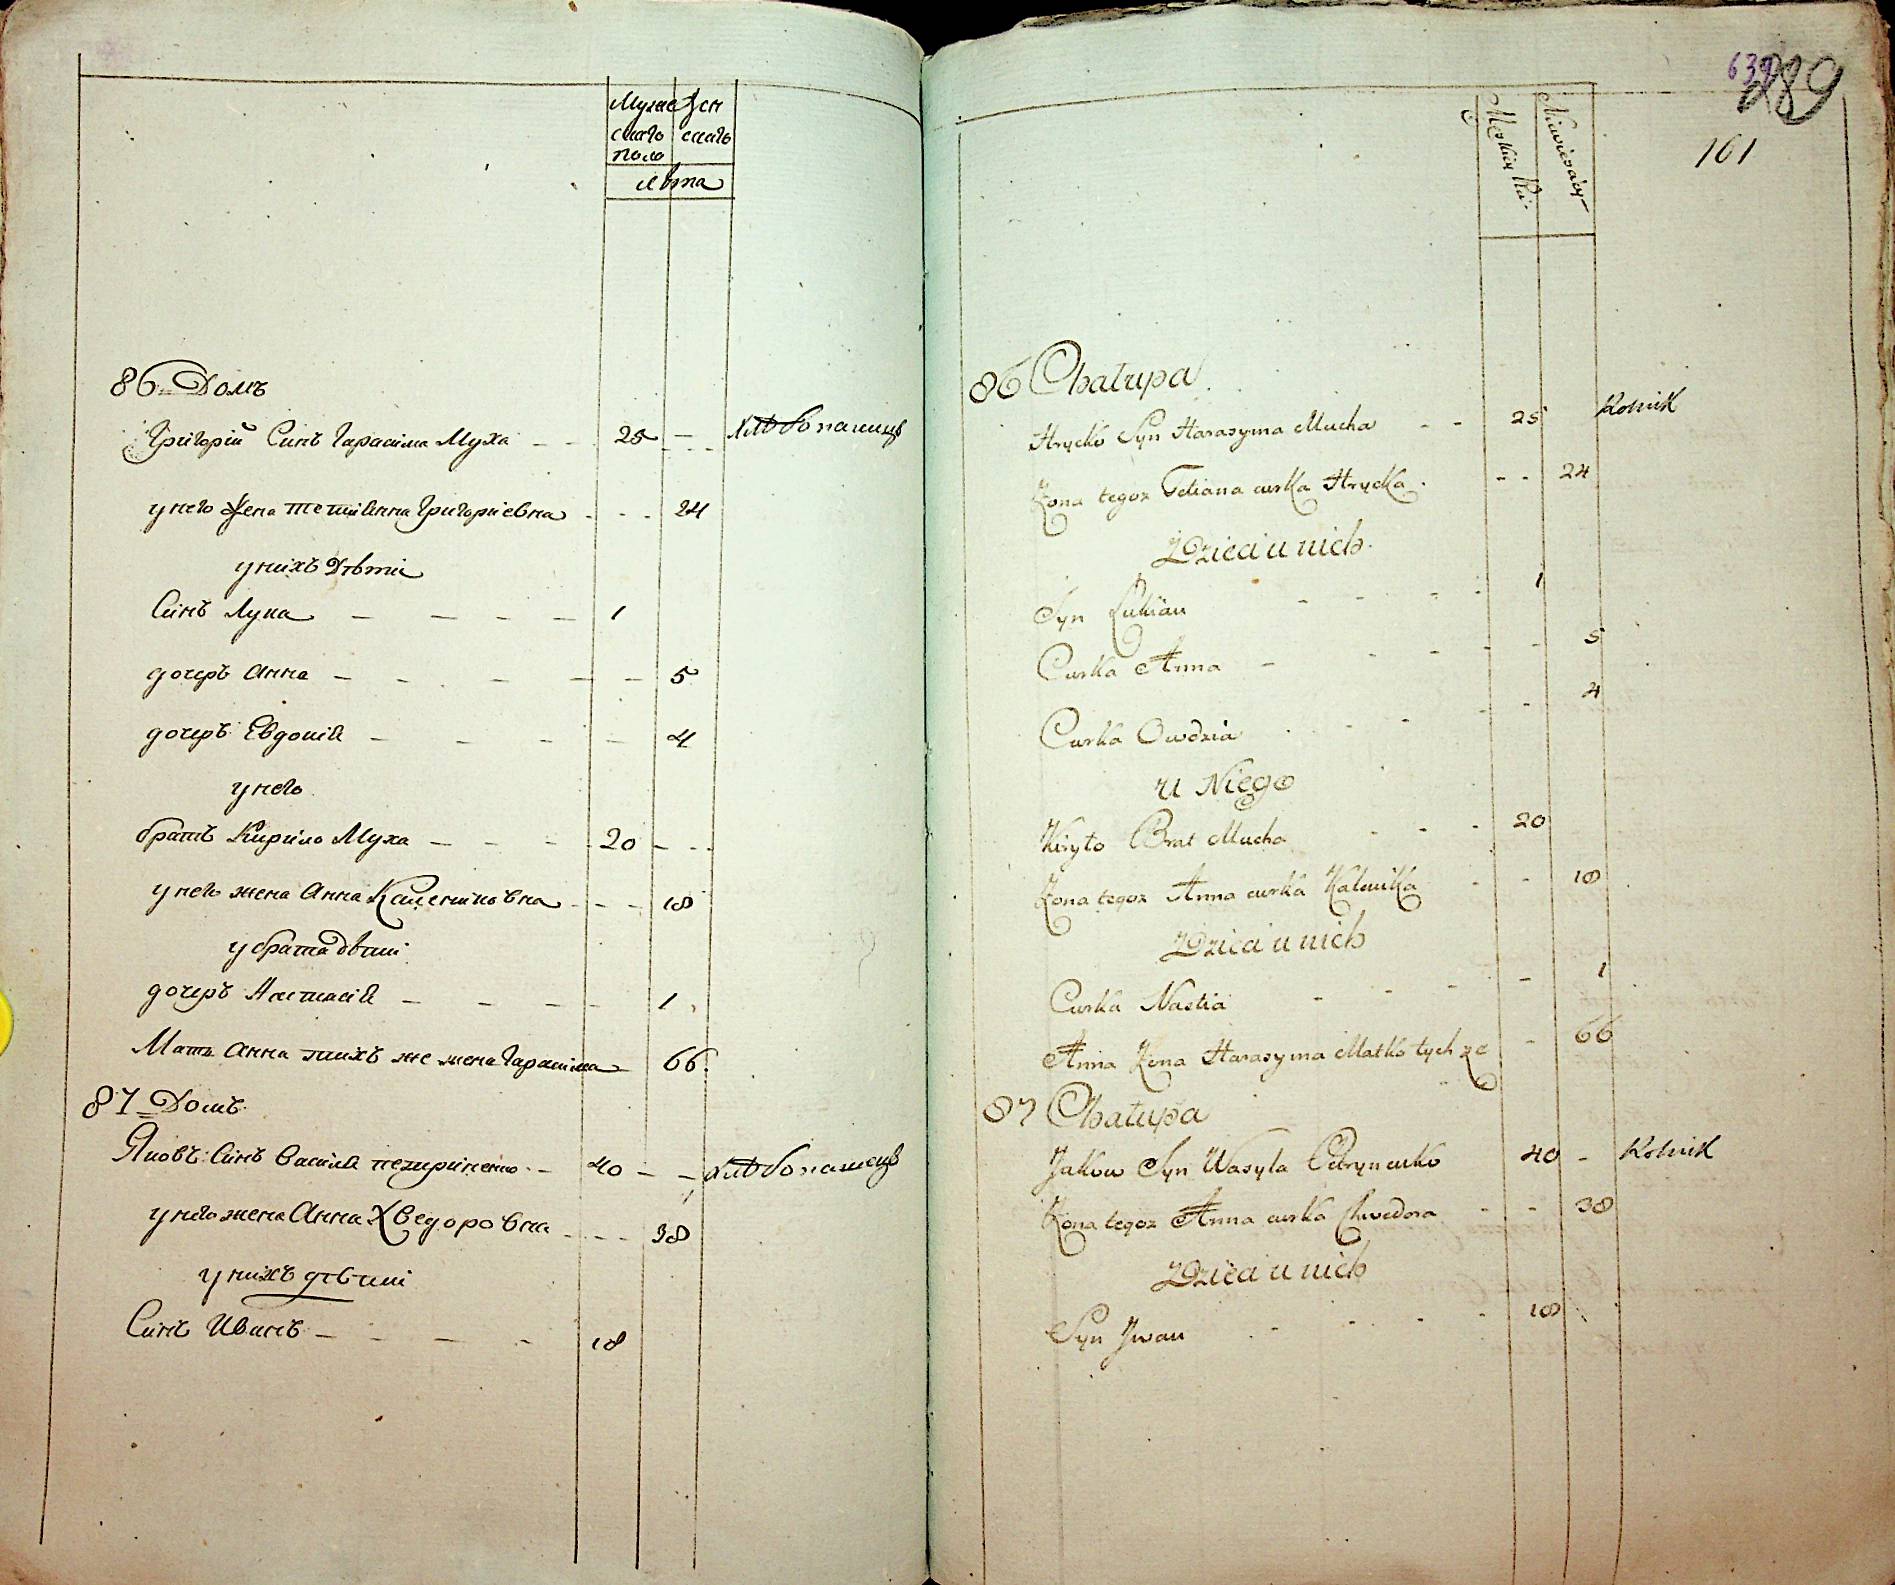 Мужескаго полa
Женскаго
лѣта
86 Домъ
Григорій Синъ Гарасима Муха — 25 — хлѣбопашецъ
у него жена Тетиянна Григориевна - - - 24
у нихъ Дѣти
Синъ Лука — — — — 1
дочеръ Анна — - - — — 5
дочеръ Евдокия — - - - 4
у него
братъ Кирило Муха — - - 20 - - -
у него жена Анна - - - 18
у брата дѣти
дочеръ Настасия — - - - 1
Мать Анна тихъ же жена Гарасима — 66
87 Домъ
Яковъ Синъ Василя - - 40 - - хлѣбопашецъ
у него жена Анна Хведоровна - - - 38
у нихъ дѣти
Синъ Иванъ — - - - 18
639
289
161
Męskiey
Niewieściey
86 Chałupa
Hrycko Syn Harasyma Mucha - - 25 Rolnik
Żona tegoż Tetiana curka Hrycka - - 24
Dzieci u nich
Syn Łukian - - - - 1
Curka Anna - - - - - 5
Curka Owdzia - - - - - 4
u Niego
Kiryło Brat Mucha - - - 20
Żona tegoż Anna curka Kalenika - - 18
Dzieci u nich
Curka Nastia - - - - 1
Anna Żona Harasyma Matka tych że - 66
87 Chałupa
Jakow Syn Wasyla 40 - Rolnik
Żona tegoż Anna curka Chwedora - - 38
Dzieci u nich
Syn Jwan - - - - 18